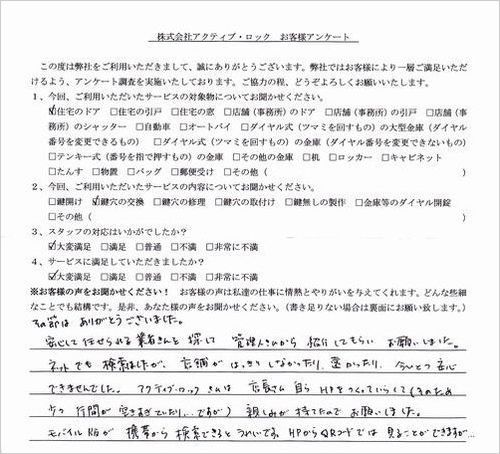 株式会社アクティブ・ロック　お客様アンケート
この度は弊社をご利用いただきまして、誠にありがとうございます。弊社ではお客様により一層ご満足いただ
けるよう、アンケート調査を実施いたしております。ご協力の程、どうぞよろしくお願いいたします。
1、今回、ご利用いただいたサービスの対象物についてお聞かせください。
☑住宅のドア　□住宅の引戸　□住宅の窓　□店舗（事務所）のドア　□店舗（事務所）の引戸　□店舗（事
務所）のシャッター　□自動車　□オートバイ　□ダイヤル式（ツマミを回すもの）の大型金庫（ダイヤル
番号を変更できるもの）　□ダイヤル式（ツマミを回すもの）の金庫（ダイヤル番号を変更できないもの）
□テンキー式（番号を指で押すもの）の金庫　□その他の金庫　□机　□ロッカー　□キャビネット
□たんす　□物置　□バッグ　□郵便受け　□その他（　　　）
2、今回、ご利用いただいたサービスの内容についてお聞かせください。
□鍵開け　☑鍵穴の交換　□鍵穴の修理　□鍵穴の取付け　□鍵無しの製作　□金庫等のダイヤル開錠
□その他（　　　）
3、スタッフの対応はいかがでしたか？
☑大変満足　□満足　□普通　□不満　□非常に不満
4、サービスに満足していただきましたか？
☑大変満足　□満足　□普通　□不満　□非常に不満
※お客様の声をお聞かせください！　お客様の声は私達の仕事に情熱とやりがいを与えてくれます。どんな些細
なことでも結構です。是非、あなた様の声をお聞かせください。（書き足りない場合は裏面にお願い致します。）
その節は ありがとうございました。
安心して任せられる業者さんを 探して 管理人さんから 紹介してもらい お願いしました。
ネットでも 検索しましたが、店舗が はっきりしなかったり、遠かったり、今ひとつ 安心
できませんでした。アクティブ・ロックさんは 店長さん 自ら HPをつくっていらして（そのため
行間が 空きすぎていたり…ですが）親しみが 持てたので お願いしました。
モバイル 携帯から 検索できると うれしいです。HPからQRコードでは 見ることができますが…